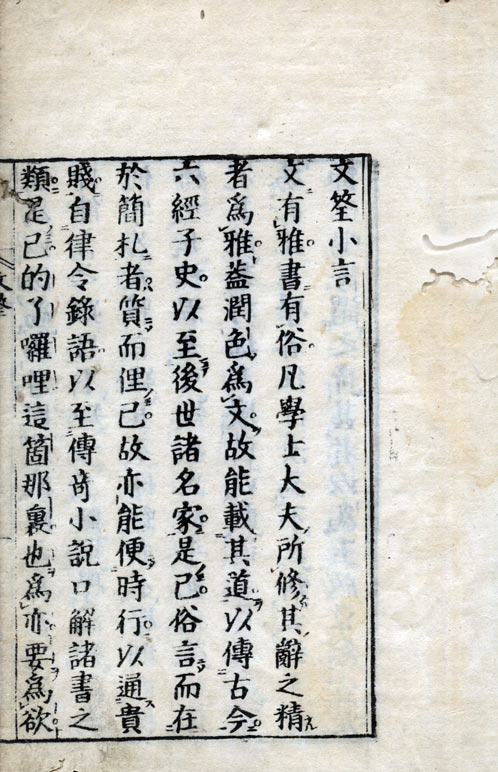 文筌小言
文有雅書有俗凡學士大夫所修其辭之精
者爲雅葢潤色爲文故能載其道以傳古今
六經子史以至後世諸名家是已俗言而在
於簡札者質而俚已故亦能便時行以通貴
賤自律令錄語以至傳奇小説口解諸書之
類是已的了囉哩這箇那裏也爲亦要爲欲